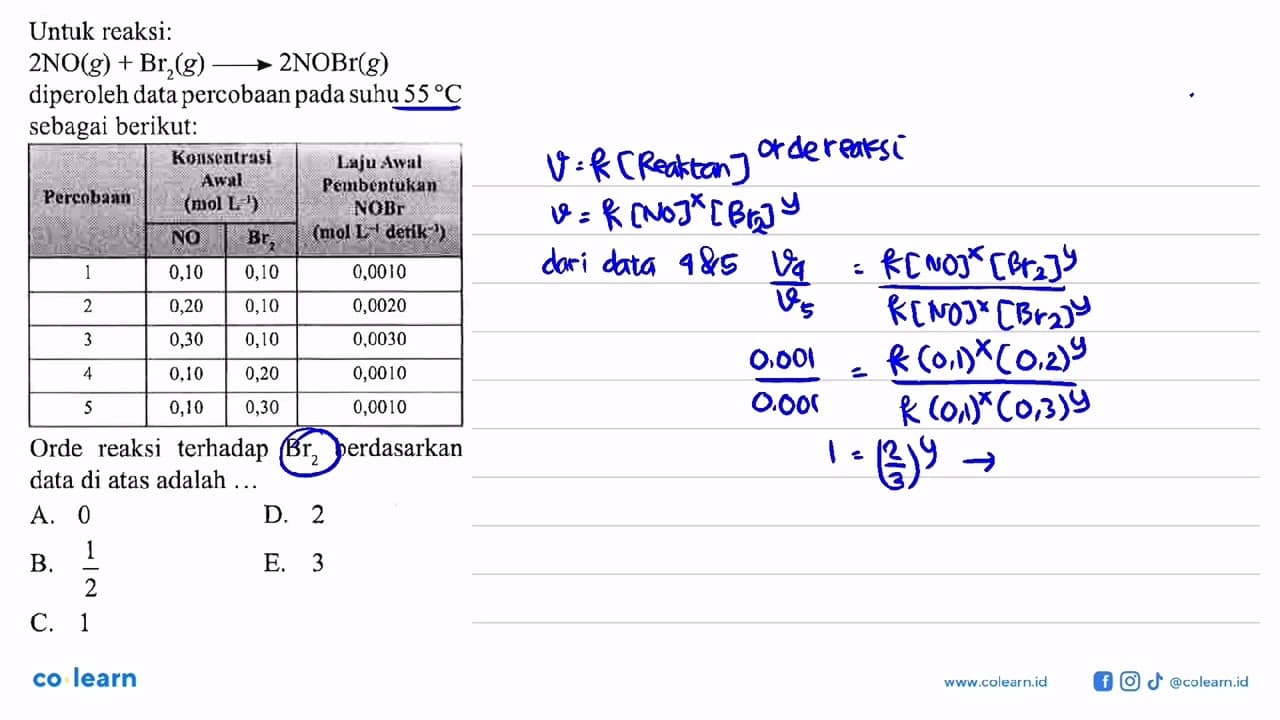 Untuk reaksi:
2NO(g) + Br₂(g) ⟶ 2NOBr(g)
diperoleh data percobaan pada suhu 55 °C
sebagai berikut:
Percobaan
Konsentrasi Awal (mol L⁻¹)
Laju Awal Pembentukan NOBr (mol L⁻¹ detik⁻¹)
NO Br₂
1 0,10 0,10 0,0010
2 0,20 0,10 0,0020
3 0,30 0,10 0,0030
4 0,10 0,20 0,0010
5 0,10 0,30 0,0010
Orde reaksi terhadap Br₂ berdasarkan
data di atas adalah ...
A. 0
B. 1/2
C. 1
D. 2
E. 3
v = k [Reaktan] orde reaksi
v = k [NO]ˣ [Br₂]ʸ
dari data 4 & 5 v₄/v₅ = k[NO]ˣ [Br₂]ʸ / k[NO]ˣ [Br₂]ʸ
0.001/0.001 = k (0,1)ˣ (0,2)ʸ / k (0,1)ˣ (0,3)ʸ
1 = (2/3)ʸ →
co learn
www.colearn.id
@colearn.id